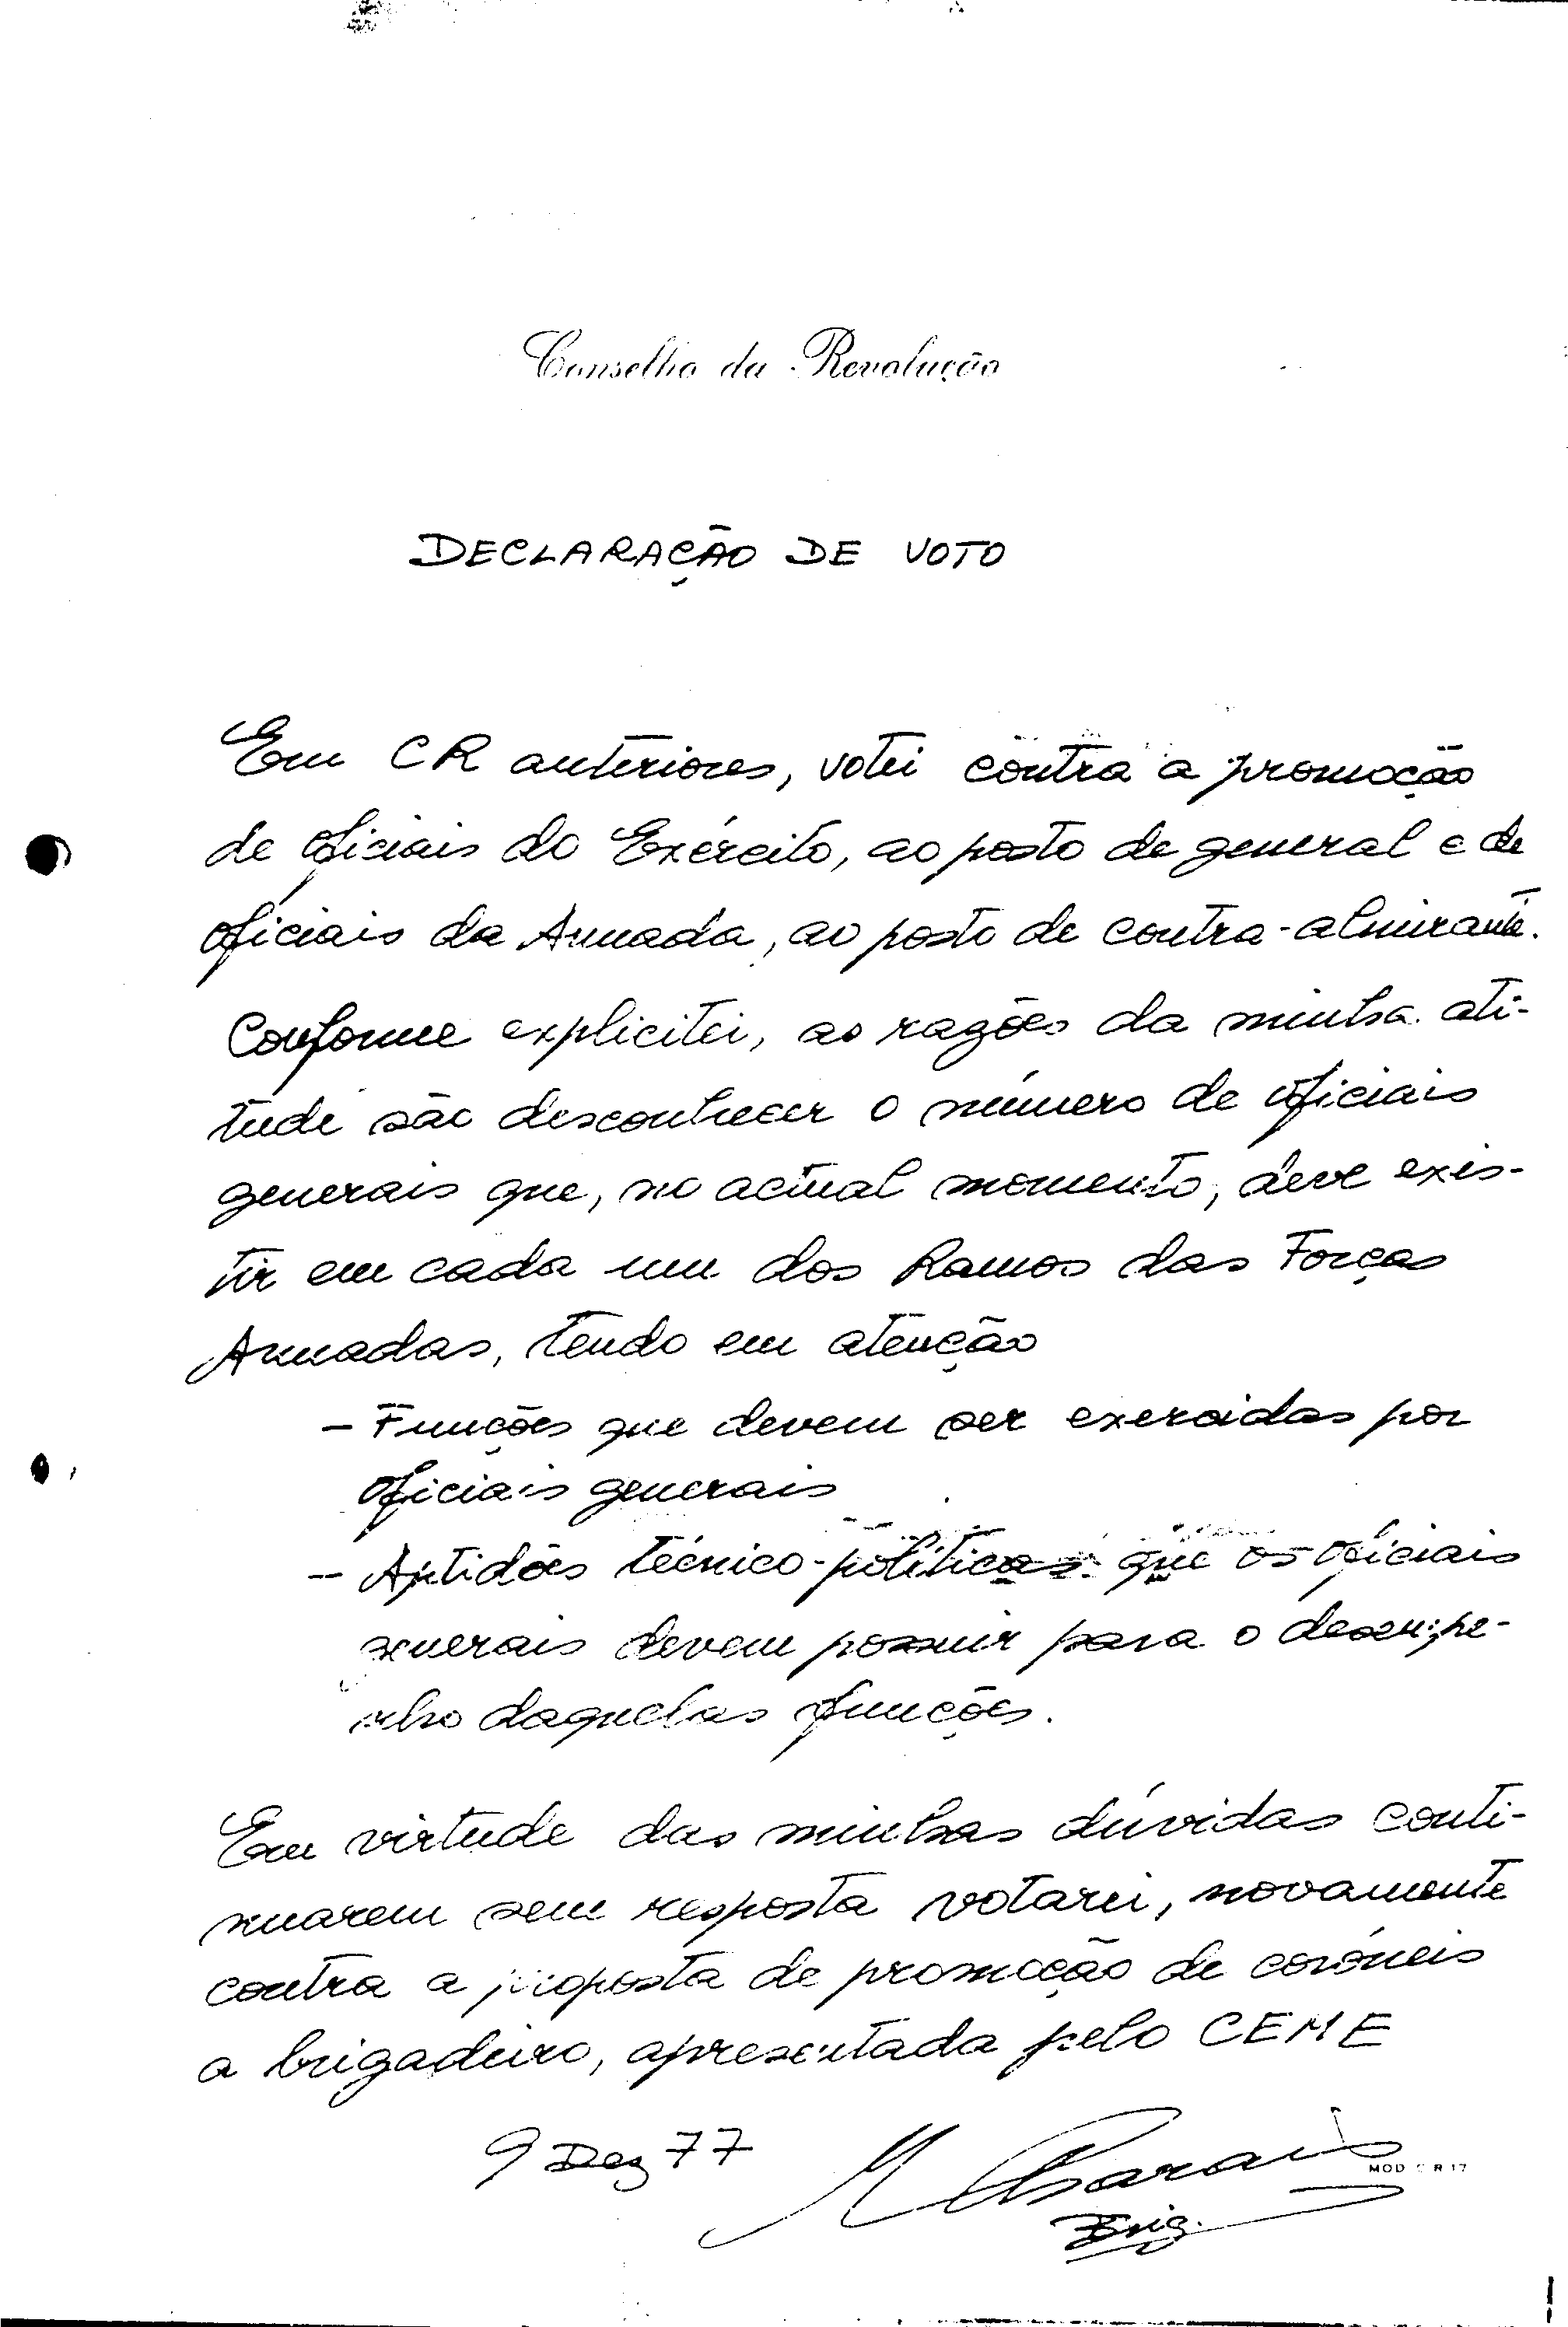 Conselho da Revolução
DECLARAÇÃO DE VOTO
Em CR anteriores, votei contra a promoção
de oficiais do Exército, ao posto de general e de
oficiais da Armada, ao posto de contra-almirante.
Conforme explicitei, as razões da minha ati-
tude são desconhecer o número de oficiais
generais que, no actual momento, deve exis-
tir em cada um dos Ramos das Forças
Armadas, tendo em atenção
- Funções que devem ser exercidas por
oficiais generais
- Aptidões técnico-políticas que os oficiais
generais devem possuir para o desempe-
nho daquelas funções.
Em virtude das minhas dúvidas conti-
nuarem sem resposta votarei, novamente
contra a proposta de promoção de coronéis
a brigadeiro, apresentada pelo CEME
9 Dez 77 M Charais
MOD C R 17
Brig.